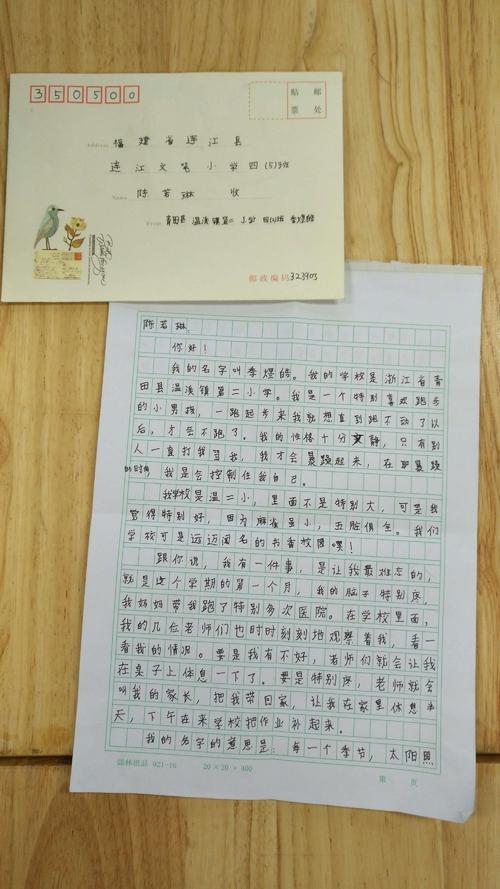 350500
贴 邮
票 处
Address 福建省连江县
连江文笔小学四(5)班
Name 陈若琳 收
From 青田县温溪镇第二小学 季煜皓
邮政编码 323903
陈若琳:
你好!
我的名字叫季煜皓。我的学校是浙江省青
田县温溪镇第二小学。我是一个特别喜欢跑步
的小男孩,一跑起步来我就想直到跑不动了以
后,才会不跑了。我的性格十分文静,只有别
人一直打我骂我,我才会暴躁起来,在职暴躁
的时候 我是会控制住我自己。
我学校是温二小,里面不是特别大,可是我
觉得特别好,因为麻雀虽小,五脏俱全。我们
学校可是远迈闻名的书香校园噢!
跟你说,我有一件事,是让我最难忘的,
就是这个学期的第一个月,我的脑子特别疼,
我妈妈带我跑了特别多次医院。在学校里面,
我的几位老师们也时时刻刻地观察着我,看一
看我的情况。要是我有不好,老师们就会让我
在桌子上休息一下了。要是特别疼,老师就会
叫我的家长,把我带回家,让我在家里休息半
天,下午在来学校把作业补起来。
我的名字的意思是:每一个季节,太阳照
强林纸品 021-16 20×20=400 第 页